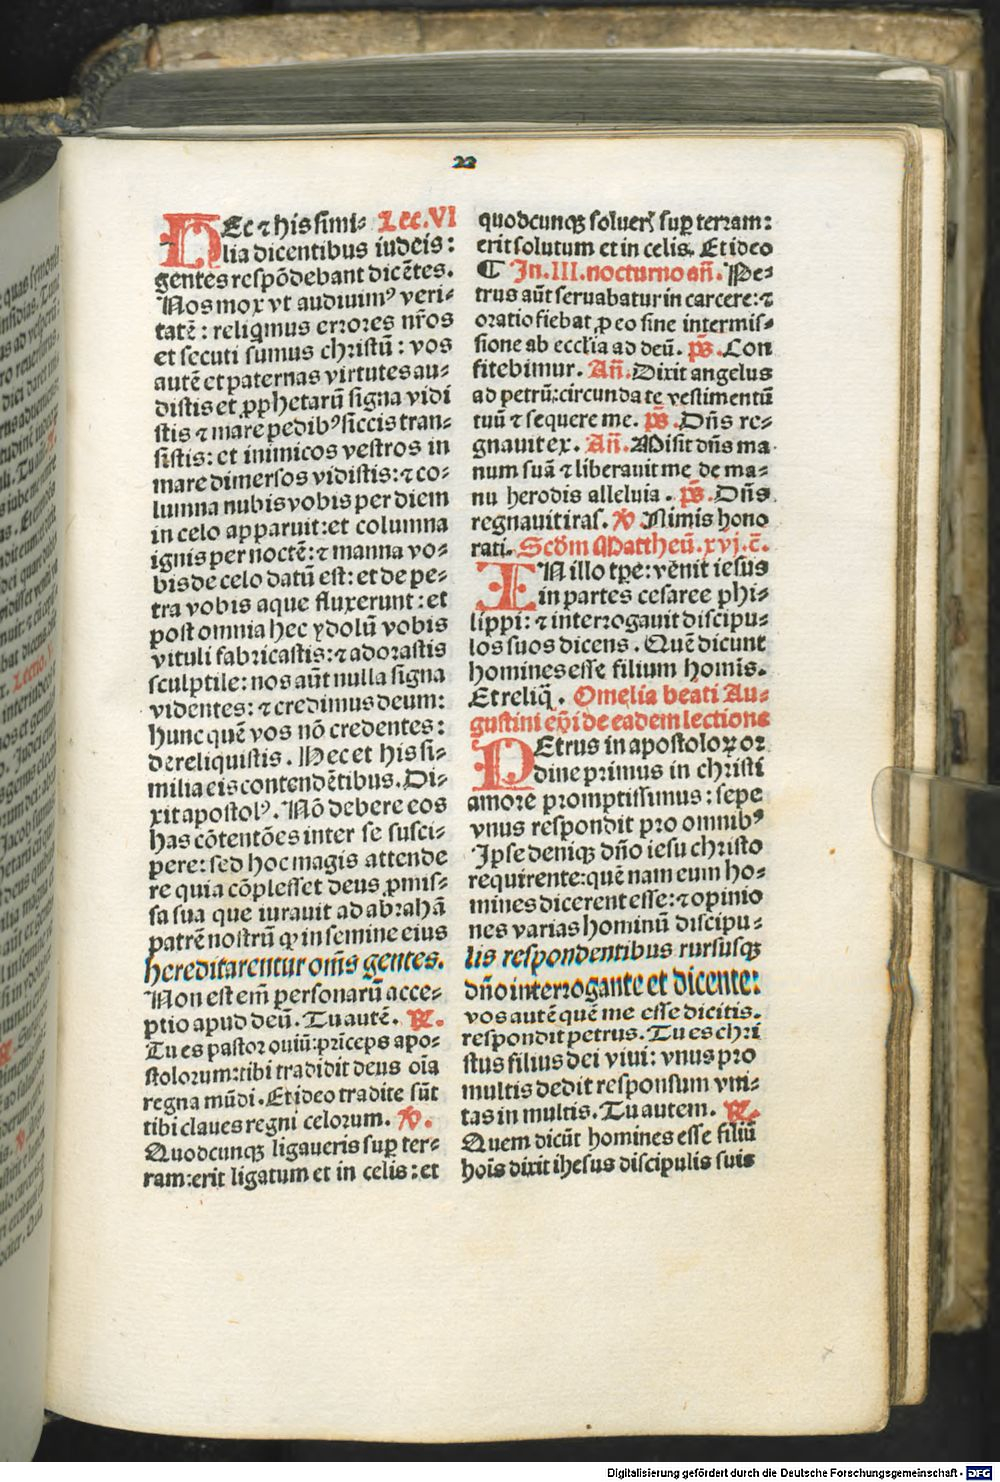 22
HEc ⁊ his simi- Lec. VI
lia dicentibus iudeis:
gentes respōdebant dicētes.
Nos mox vt audiuimꝰ veri-
tatē: reliqͥmus errores nr̄os
et secuti sumus christū: vos
autē et paternas virtutes au-
distis et ꝓphetarū signa vidi
stis ⁊ mare pedibꝰ siccis tran-
sistis: et inimicos vestros in
mare dimersos vidistis: ⁊ co-
lumna nubis vobis per diem
in celo apparuit: et columna
ignis per noctē: ⁊ manna vo-
bis de celo datū est: et de pe-
tra vobis aque fluxerunt: et
post omnia hec ydolū vobis
vituli fabricastis: ⁊ adorastis
sculptile: nos aūt nulla signa
videntes: ⁊ credimus deum:
hunc quē vos nō credentes:
dereliquistis. Hec et his si-
milia eis contendētibus. Di-
xit apostolꝰ. Nō debere eos
has cōtentōes inter se susci-
pere: sed hoc magis attende
re quia cōplesset deus ꝓmis-
sa sua que iurauit ad abrahā
patrē nostrū ꝙ in semine eius
hereditarentur om̄s gentes.
Non est em̄ personarū acce-
ptio apud deū. Tu autē. ℟.
Tu es pastor ouiū: prīceps apo-
stolorum: tibi tradidit deus oīa
regna mūdi. Et ideo tradite sūt
tibi claues regni celorum. ℣.
Quodcunqꝫ ligaueris suꝑ ter-
ram: erit ligatum et in celis: et
quodcunqꝫ soluer̄ suꝑ terram:
erit solutum et in celis. Et ideo
¶ In. III. nocturno an̄. Pe-
trus aūt seruabatur in carcere: ⁊
oratio fiebat ꝓ eo sine intermis-
sione ab ecclīa ad deū. p̄s. Con
fitebimur. An̄. Dixit angelus
ad petrū: circunda te vestimentū
tuū ⁊ sequere me. p̄s. Dn̄s re-
gnauit ex. An̄. Misit dn̄s ma
num suā ⁊ liberauit me de ma-
nu herodis alleluia. p̄s. Dn̄s
regnauit iras. ℣ Nimis hono
rati. Scd̄m Mattheū. xvj. c̄.
IN illo tꝑe: venit iesus
in partes cesaree phi-
lippi: ⁊ interrogauit discipu-
los suos dicens. Quē dicunt
homines esse filium homis.
Et reliq̄. Omelia beati Au-
gustini ep̄i de eadem lectione
PEtrus in apostoloꝝ or
dine primus in christi
amore promptissimus: sepe
vnus respondit pro omnibꝰ
Ipse deniqꝫ dn̄o iesu christo
requirente: quē nam eum ho-
mines dicerent esse: ⁊ opinio
nes varias hominū discipu-
lis respondentibus rursusqꝫ
dn̄o interrogante et dicente:
vos autē quē me esse dicitis.
respondit petrus. Tu es chrī
stus filius dei viui: vnus pro
multis dedit responsum vni-
tas in multis. Tu autem. ℟.
Quem dicūt homines esse filiū
hoīs dixit ihesus discipulis suis
Digitalisierung gefördert durch die Deutsche Forschungsgemeinschaft - DFG